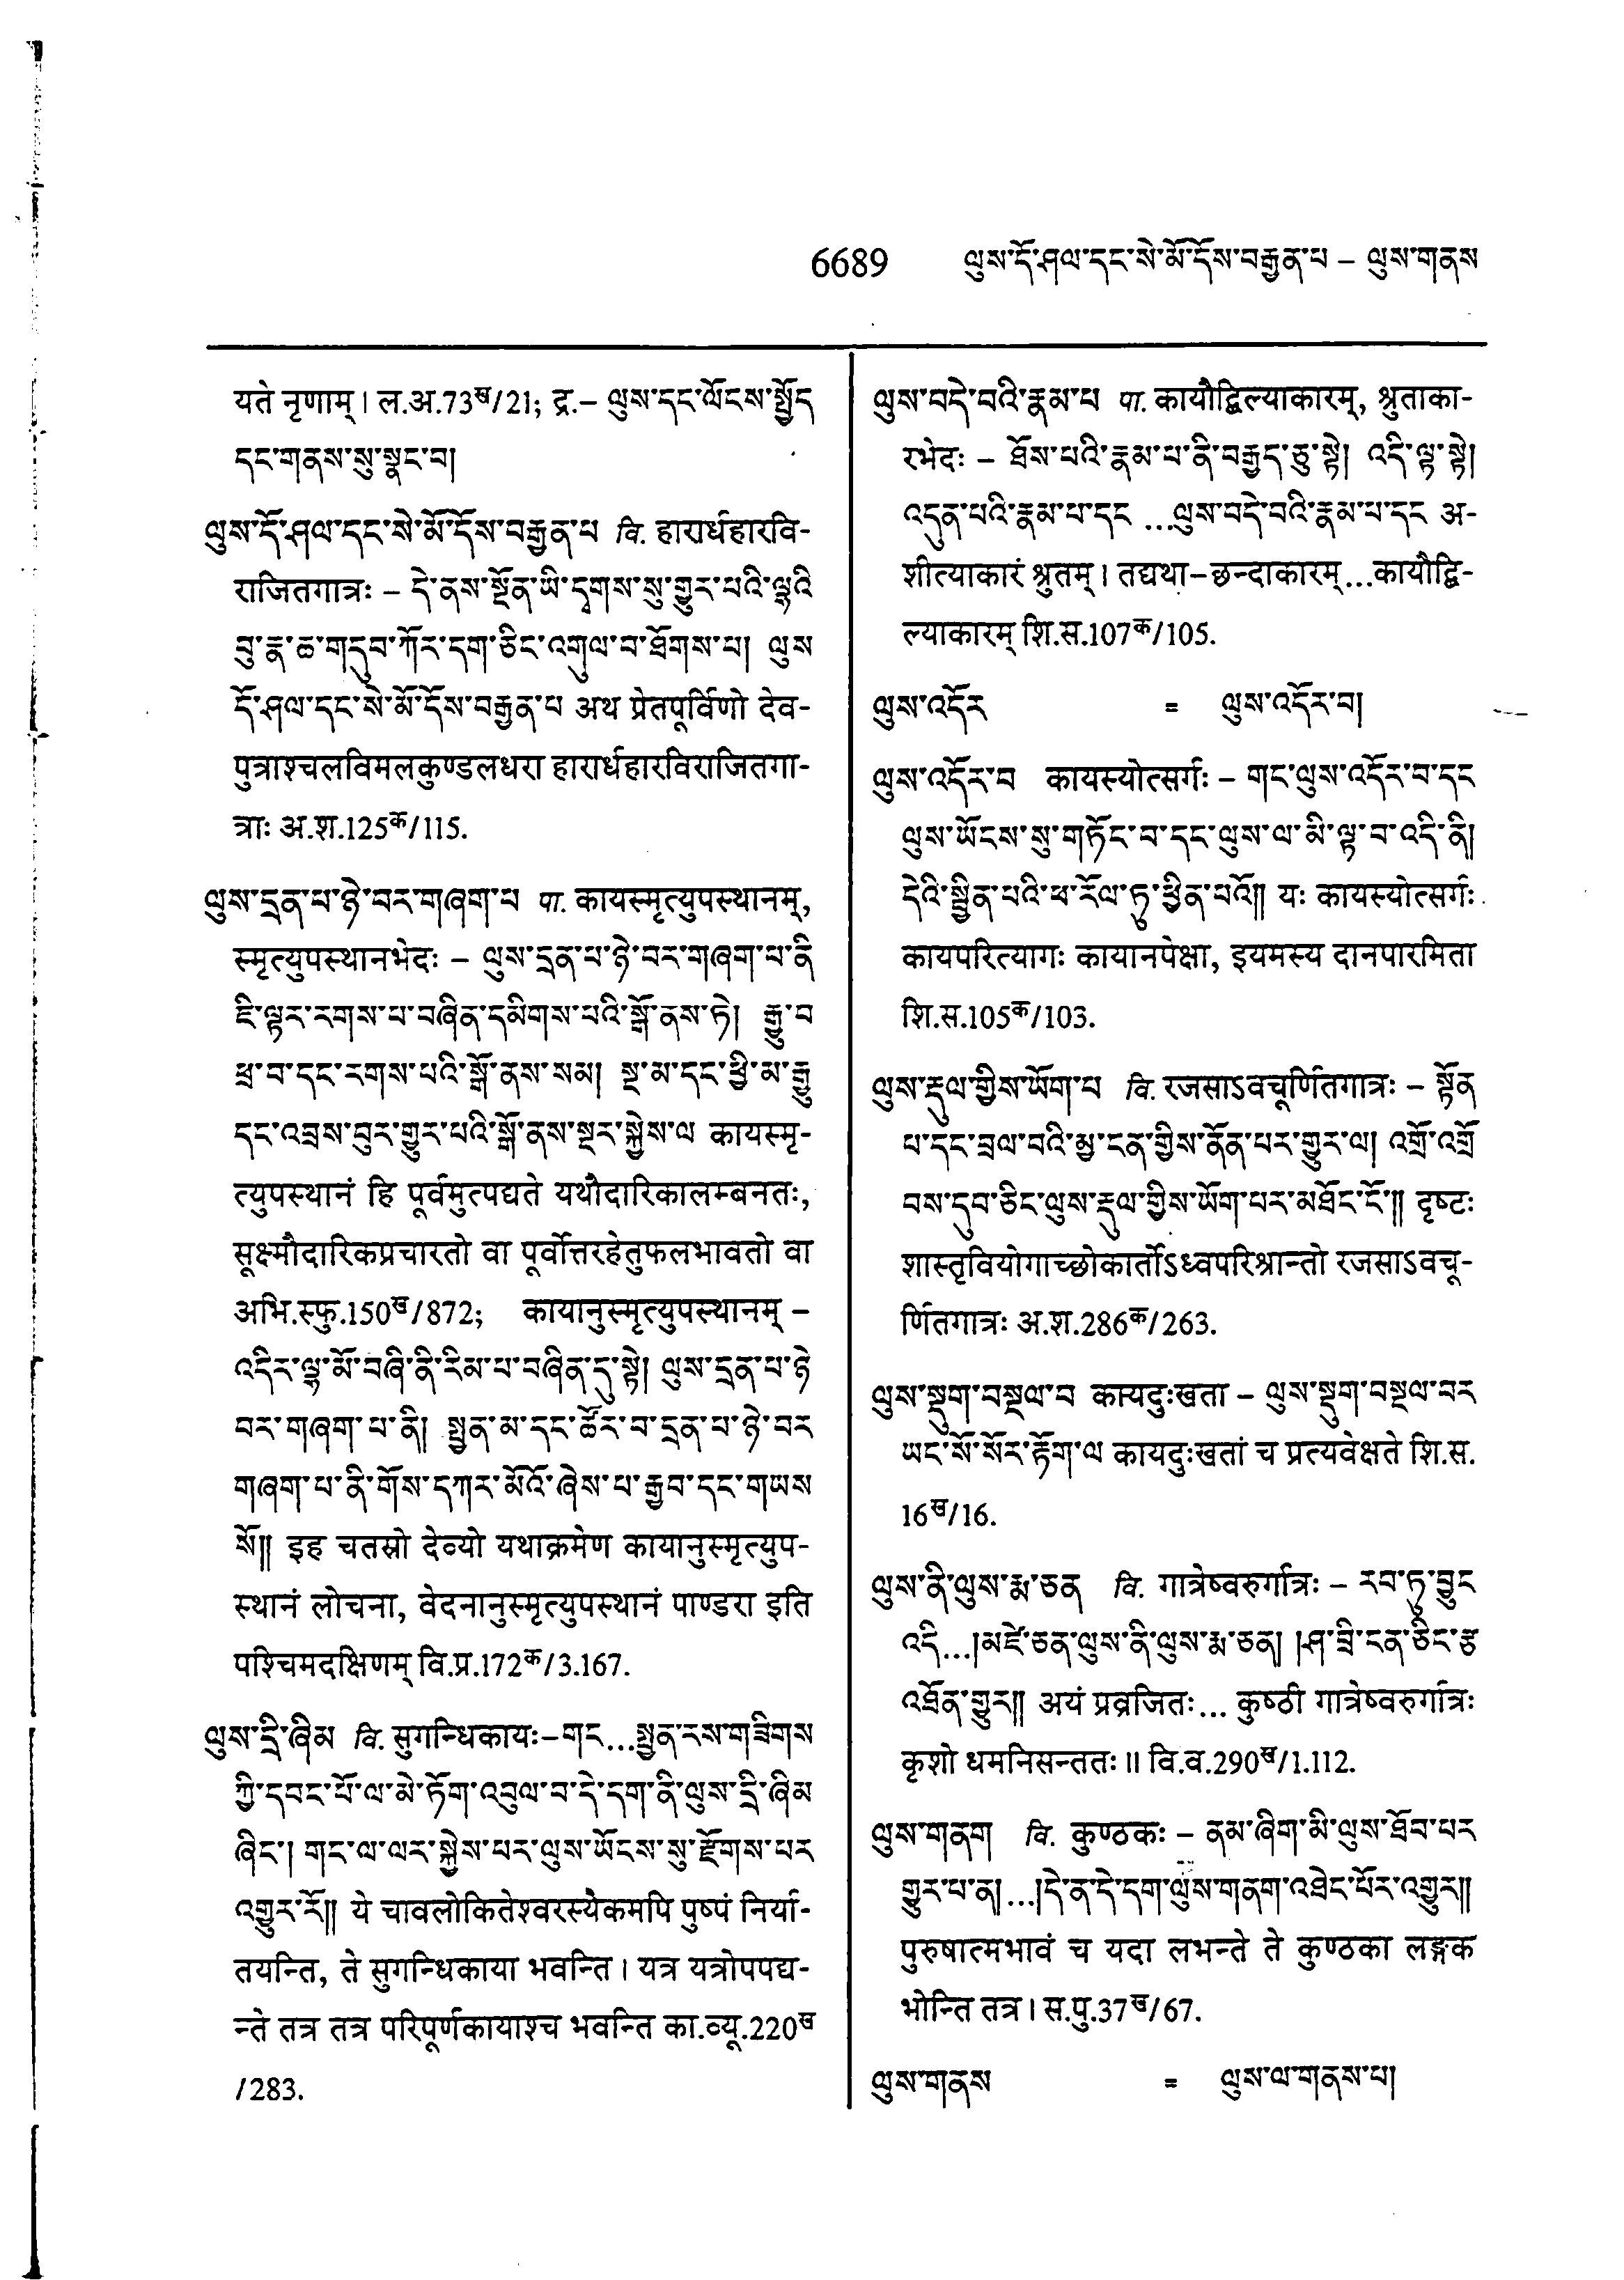 6689 ལུས་དོ་ཤལ་དང་སེ་མོ་དོས་བརྒྱན་པ – ལུས་གནས
यते नृणाम्। ल.अ.73ख/21; द्र.– ལུས་དང་ལོངས་སྤྱོད
དང་གནས་སུ་སྣང་བ།
ལུས་དོ་ཤལ་དང་སེ་མོ་དོས་བརྒྱན་པ वि. हारार्धहारवि-
राजितगात्रः – དེ་ནས་སྔོན་ཡི་དྭགས་སུ་གྱུར་པའི་ལྷའི
བུ་རྣ་ཆ་གདུབ་ཀོར་དག་ཅིང་འགུལ་བ་ཐོགས་པ། ལུས
དོ་ཤལ་དང་སེ་མོ་དོས་བརྒྱན་པ अथ प्रेतपूर्विणो देव-
पुत्राश्चलविमलकुण्डलधरा हारार्धहारविराजितगा-
त्राः अ.श.125क/115.
ལུས་དྲན་པ་ཉེ་བར་གཞག་པ पा. कायस्मृत्युपस्थानम्,
स्मृत्युपस्थानभेदः – ལུས་དྲན་པ་ཉེ་བར་གཞག་པ་ནི
ཇི་ལྟར་རགས་པ་བཞིན་དམིགས་པའི་སྒོ་ནས་ཏེ། རྒྱུ་བ
ཕྲ་བ་དང་རགས་པའི་སྒོ་ནས་སམ། སྔ་མ་དང་ཕྱི་མ་རྒྱུ
དང་འབྲས་བུར་གྱུར་པའི་སྒོ་ནས་སྔར་སྐྱེས་ལ कायस्मृ-
त्युपस्थानं हि पूर्वमुत्पद्यते यथौदारिकालम्बनतः,
सूक्ष्मौदारिकप्रचारतो वा पूर्वोत्तरहेतुफलभावतो वा
अभि.स्फु.150ख/872; कायानुस्मृत्युपस्थानम् –
འདིར་ལྷ་མོ་བཞི་ནི་རིམ་པ་བཞིན་དུ་སྟེ། ལུས་དྲན་པ་ཉེ
བར་གཞག་པ་ནི། སྤྱན་མ་དང་ཚོར་བ་དྲན་པ་ཉེ་བར
གཞག་པ་ནི་གོས་དཀར་མོའོ་ཞེས་པ་རྒྱབ་དང་གཡས
སོ༎ इह चतस्रो देव्यो यथाक्रमेण कायानुस्मृत्युप-
स्थानं लोचना, वेदनानुस्मृत्युपस्थानं पाण्डरा इति
पश्चिमदक्षिणम् वि.प्र.172क/3.167.
ལུས་དྲི་ཞིམ वि. सुगन्धिकायः–གང...སྤྱན་རས་གཟིགས
ཀྱི་དབང་པོ་ལ་མེ་ཏོག་འབུལ་བ་དེ་དག་ནི་ལུས་དྲི་ཞིམ
ཞིང་། གང་ལ་ལར་སྐྱེས་པར་ལུས་ཡོངས་སུ་རྫོགས་པར
འགྱུར་རོ༎ ये चावलोकितेश्वरस्यैकमपि पुष्पं निर्या-
तयन्ति, ते सुगन्धिकाया भवन्ति। यत्र यत्रोपपद्य-
न्ते तत्र तत्र परिपूर्णकायाश्च भवन्ति का.व्यू.220ख
/283.
ལུས་བདེ་བའི་རྣམ་པ पा. कायौद्विल्याकारम्, श्रुताका-
रभेदः – ཐོས་པའི་རྣམ་པ་ནི་བརྒྱད་ཅུ་སྟེ། འདི་ལྟ་སྟེ།
འདུན་པའི་རྣམ་པ་དང ...ལུས་བདེ་བའི་རྣམ་པ་དང अ-
शीत्याकारं श्रुतम्। तद्यथा–छन्दाकारम्...कायौद्वि-
ल्याकारम् शि.स.107क/105.
ལུས་འདོར = ལུས་འདོར་བ།
ལུས་འདོར་བ कायस्योत्सर्गः – གང་ལུས་འདོར་བ་དང
ལུས་ཡོངས་སུ་གཏོང་བ་དང་ལུས་ལ་མི་ལྟ་བ་འདི་ནི།
དེའི་སྦྱིན་པའི་ཕ་རོལ་ཏུ་ཕྱིན་པའོ༎ यः कायस्योत्सर्गः
कायपरित्यागः कायानपेक्षा, इयमस्य दानपारमिता
शि.स.105क/103.
ལུས་རྡུལ་གྱིས་ཡོག་པ वि. रजसाऽवचूर्णितगात्रः – སྟོན
པ་དང་བྲལ་བའི་མྱ་ངན་གྱིས་ནོན་པར་གྱུར་ལ། འགྲོ་འགྲོ
བས་དུབ་ཅིང་ལུས་རྡུལ་གྱིས་ཡོག་པར་མཐོང་ངོ་༎ दृष्टः
शास्तृवियोगाच्छोकार्तोऽध्वपरिश्रान्तो रजसाऽवचू-
र्णितगात्रः अ.श.286क/263.
ལུས་སྡུག་བསྔལ་བ कायदुःखता – ལུས་སྡུག་བསྔལ་བར
ཡང་སོ་སོར་རྟོག་ལ कायदुःखतां च प्रत्यवेक्षते शि.स.
16ख/16.
ལུས་ནི་ལུས་རྨ་ཅན वि. गात्रेष्वरुर्गात्रः – རབ་ཏུ་བྱུང
འདི...།མཛེ་ཅན་ལུས་ནི་ལུས་རྨ་ཅན། །ཤ་བྲི་ངན་ཅིང་རྩ
འཐོན་གྱུར༎ अयं प्रव्रजितः... कुष्ठी गात्रेष्वरुर्गात्रः
कृशो धमनिसन्ततः॥ वि.व.290ख/1.112.
ལུས་གནག वि. कुण्ठकः – ནམ་ཞིག་མི་ལུས་ཐོབ་པར
གྱུར་པ་ན།...།དེ་ན་དེ་དག་ལུས་གནག་འཐེང་པོར་འགྱུར༎
पुरुषात्मभावं च यदा लभन्ते ते कुण्ठका लङ्गक
भोन्ति तत्र। स.पु.37ख/67.
ལུས་གནས = ལུས་ལ་གནས་པ།